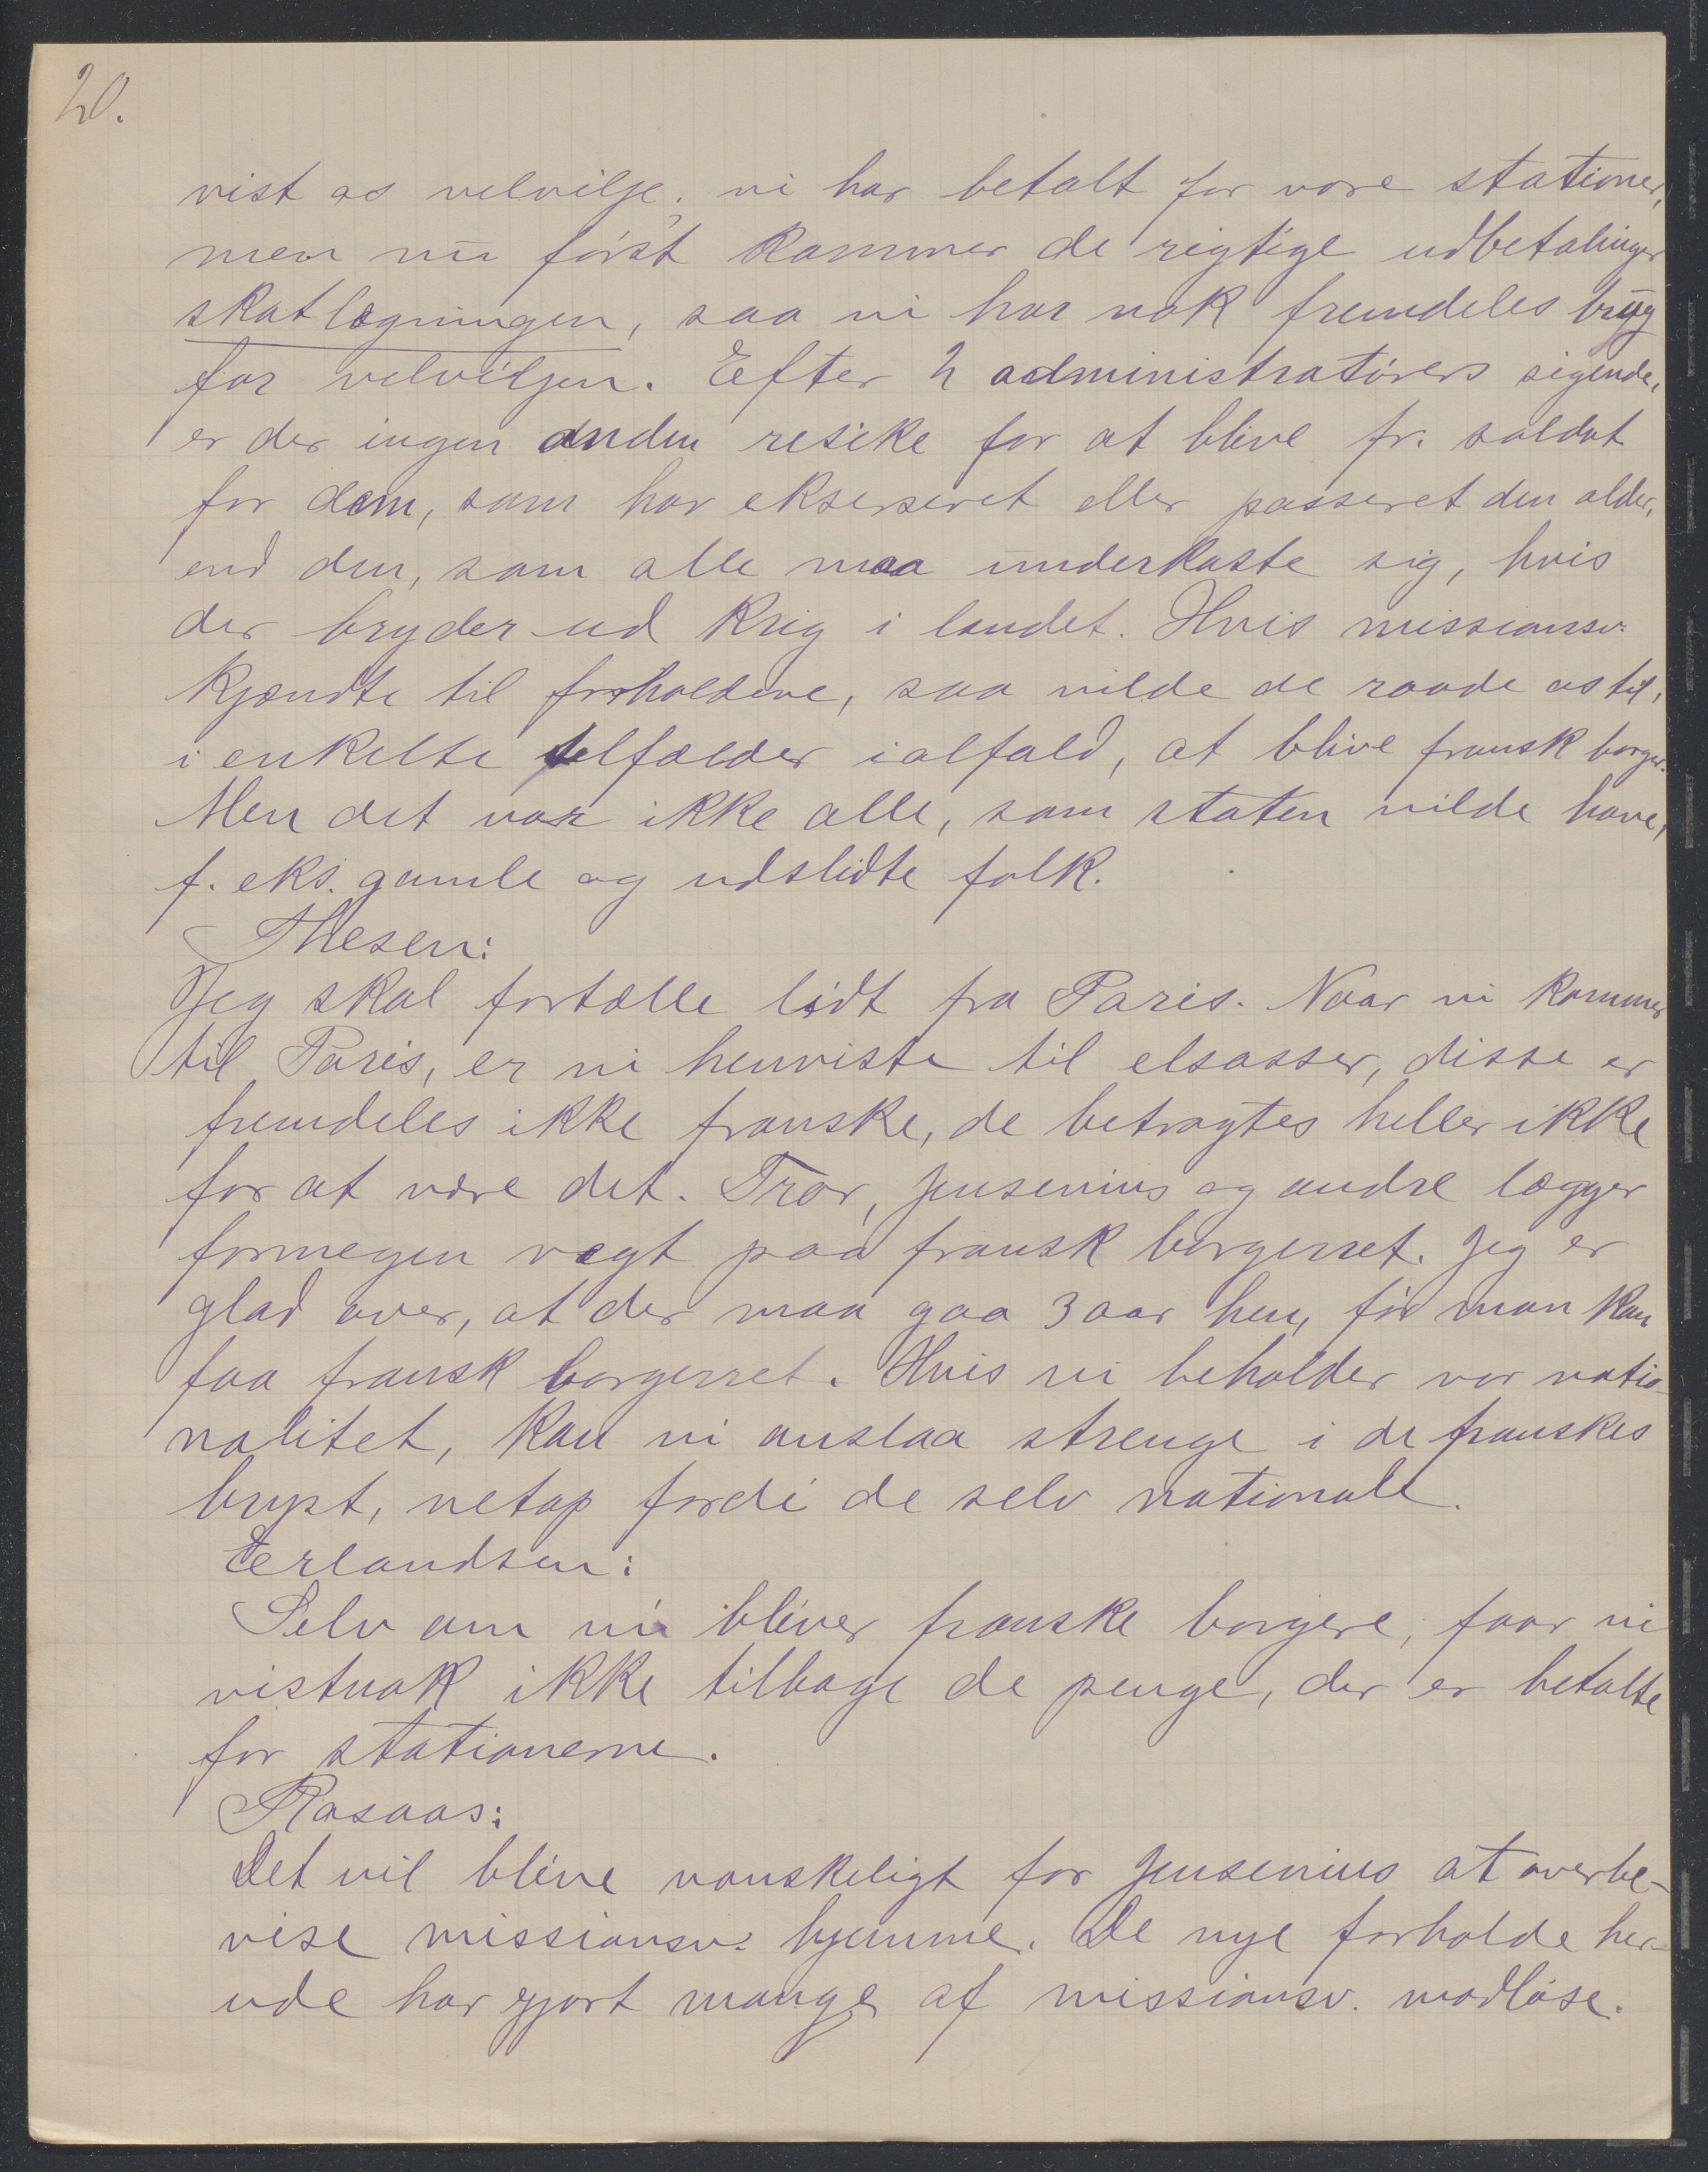 20.
vist os velvilje; vi har betalt for vore stationer,
men nu først kommer de rigtige udbetalinger
skatlægningen, saa vi har nok fremdeles brug
for velviljen. Efter 2 administratørers sigende,
er der ingen anden resike for at blive fr. soldat
for dem, som har ekserseret eller passeret den alder,
end den, som alle maa underkaste sig, hvis
der bryder ud krig i landet. Hvis missionsv.
kjendte til forholdene, saa vilde de raade os til,
i enkelte tilfælder ialfald, at blive fransk borger.
Men det var ikke alle, som staten vilde have,
f. eks. gamle og udslidte folk.
Thesen:
Jeg skal fortælle lidt fra Paris. Naar vi kommer
til Paris, er vi henviste til elsasser, disse er
fremdeles ikke franske, de betragtes heller ikke
for at være det. Tror, Jensenius og andre lægger
formegen vægt paa fransk borgerret. Jeg er
glad over, at der maa gaa 3 aar hen, før man kan
faa fransk borgerret. Hvis vi beholder vor natio-
nalitet, kan vi anslaa strenge i de franskes
bryst, netop fordi de selv nationale.
Erlandsen:
Selv om vi bliver franske borgere, faar vi
vistnok ikke tilbage de penge, der er betalte
for stationerne.
Rosaas:
Det vil blive vanskeligt for Jensenius at overbe-
vise missionsv. hjemme. De nye forholde her-
ude har gjort mange af missionsv. modløse.